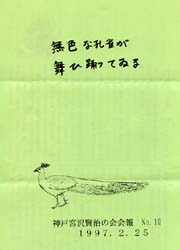 無色な孔雀が
舞ひ踊ってゐる
神戸宮沢賢治の会会報 No.10
1997.2.25